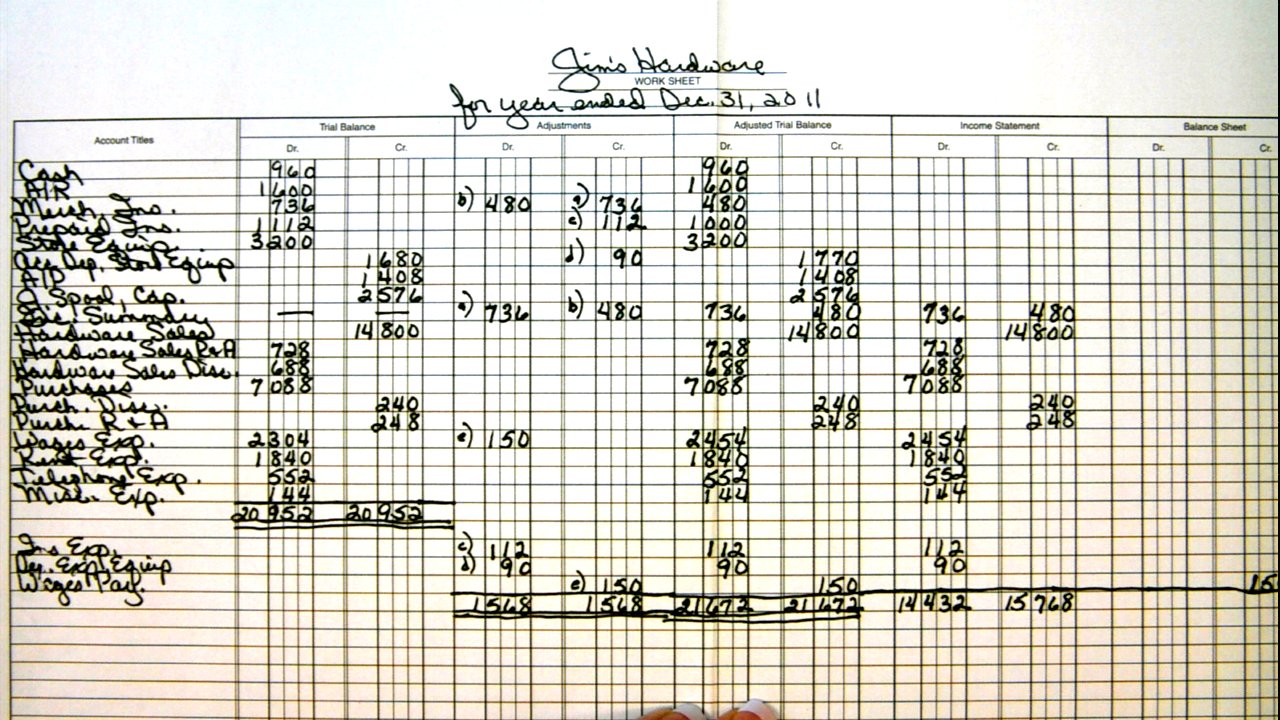 Jim's Hardware
WORK SHEET
for year ended Dec. 31, 2011
Account Titles Trial Balance Adjustments Adjusted Trial Balance Income Statement Balance Sheet
Dr. Cr. Dr. Cr. Dr. Cr. Dr. Cr. Dr. Cr.
Cash 960 960
A/R 1600 1600
Merch. Ins. 736 b) 480 a) 736 480
Prepaid Ins. 1112 c) 112 1000
Store Equip. 3200 3200
Acc. Dep. Store Equip 1680 d) 90 1770
A/P 1408 1408
J. Spool, Cap. 2576 2576
Inc. Summary — — a) 736 b) 480 736 480 736 480
Hardware Sales 14800 14800 14800
Hardware Sales R+A 728 728 728
Hardware Sales Disc. 688 688 688
Purchases 7088 7088 7088
Purch. Disc. 240 240 240
Purch. R + A 248 248 248
Wages Exp. 2304 e) 150 2454 2454
Rent Exp. 1840 1840 1840
Telephone Exp. 552 552 552
Misc. Exp. 144 144 144
20952 20952
Ins Exp. c) 112 112 112
Dep. Exp. Equip d) 90 90 90
Wages Pay. e) 150 150 15
1568 1568 21672 21672 14432 15768